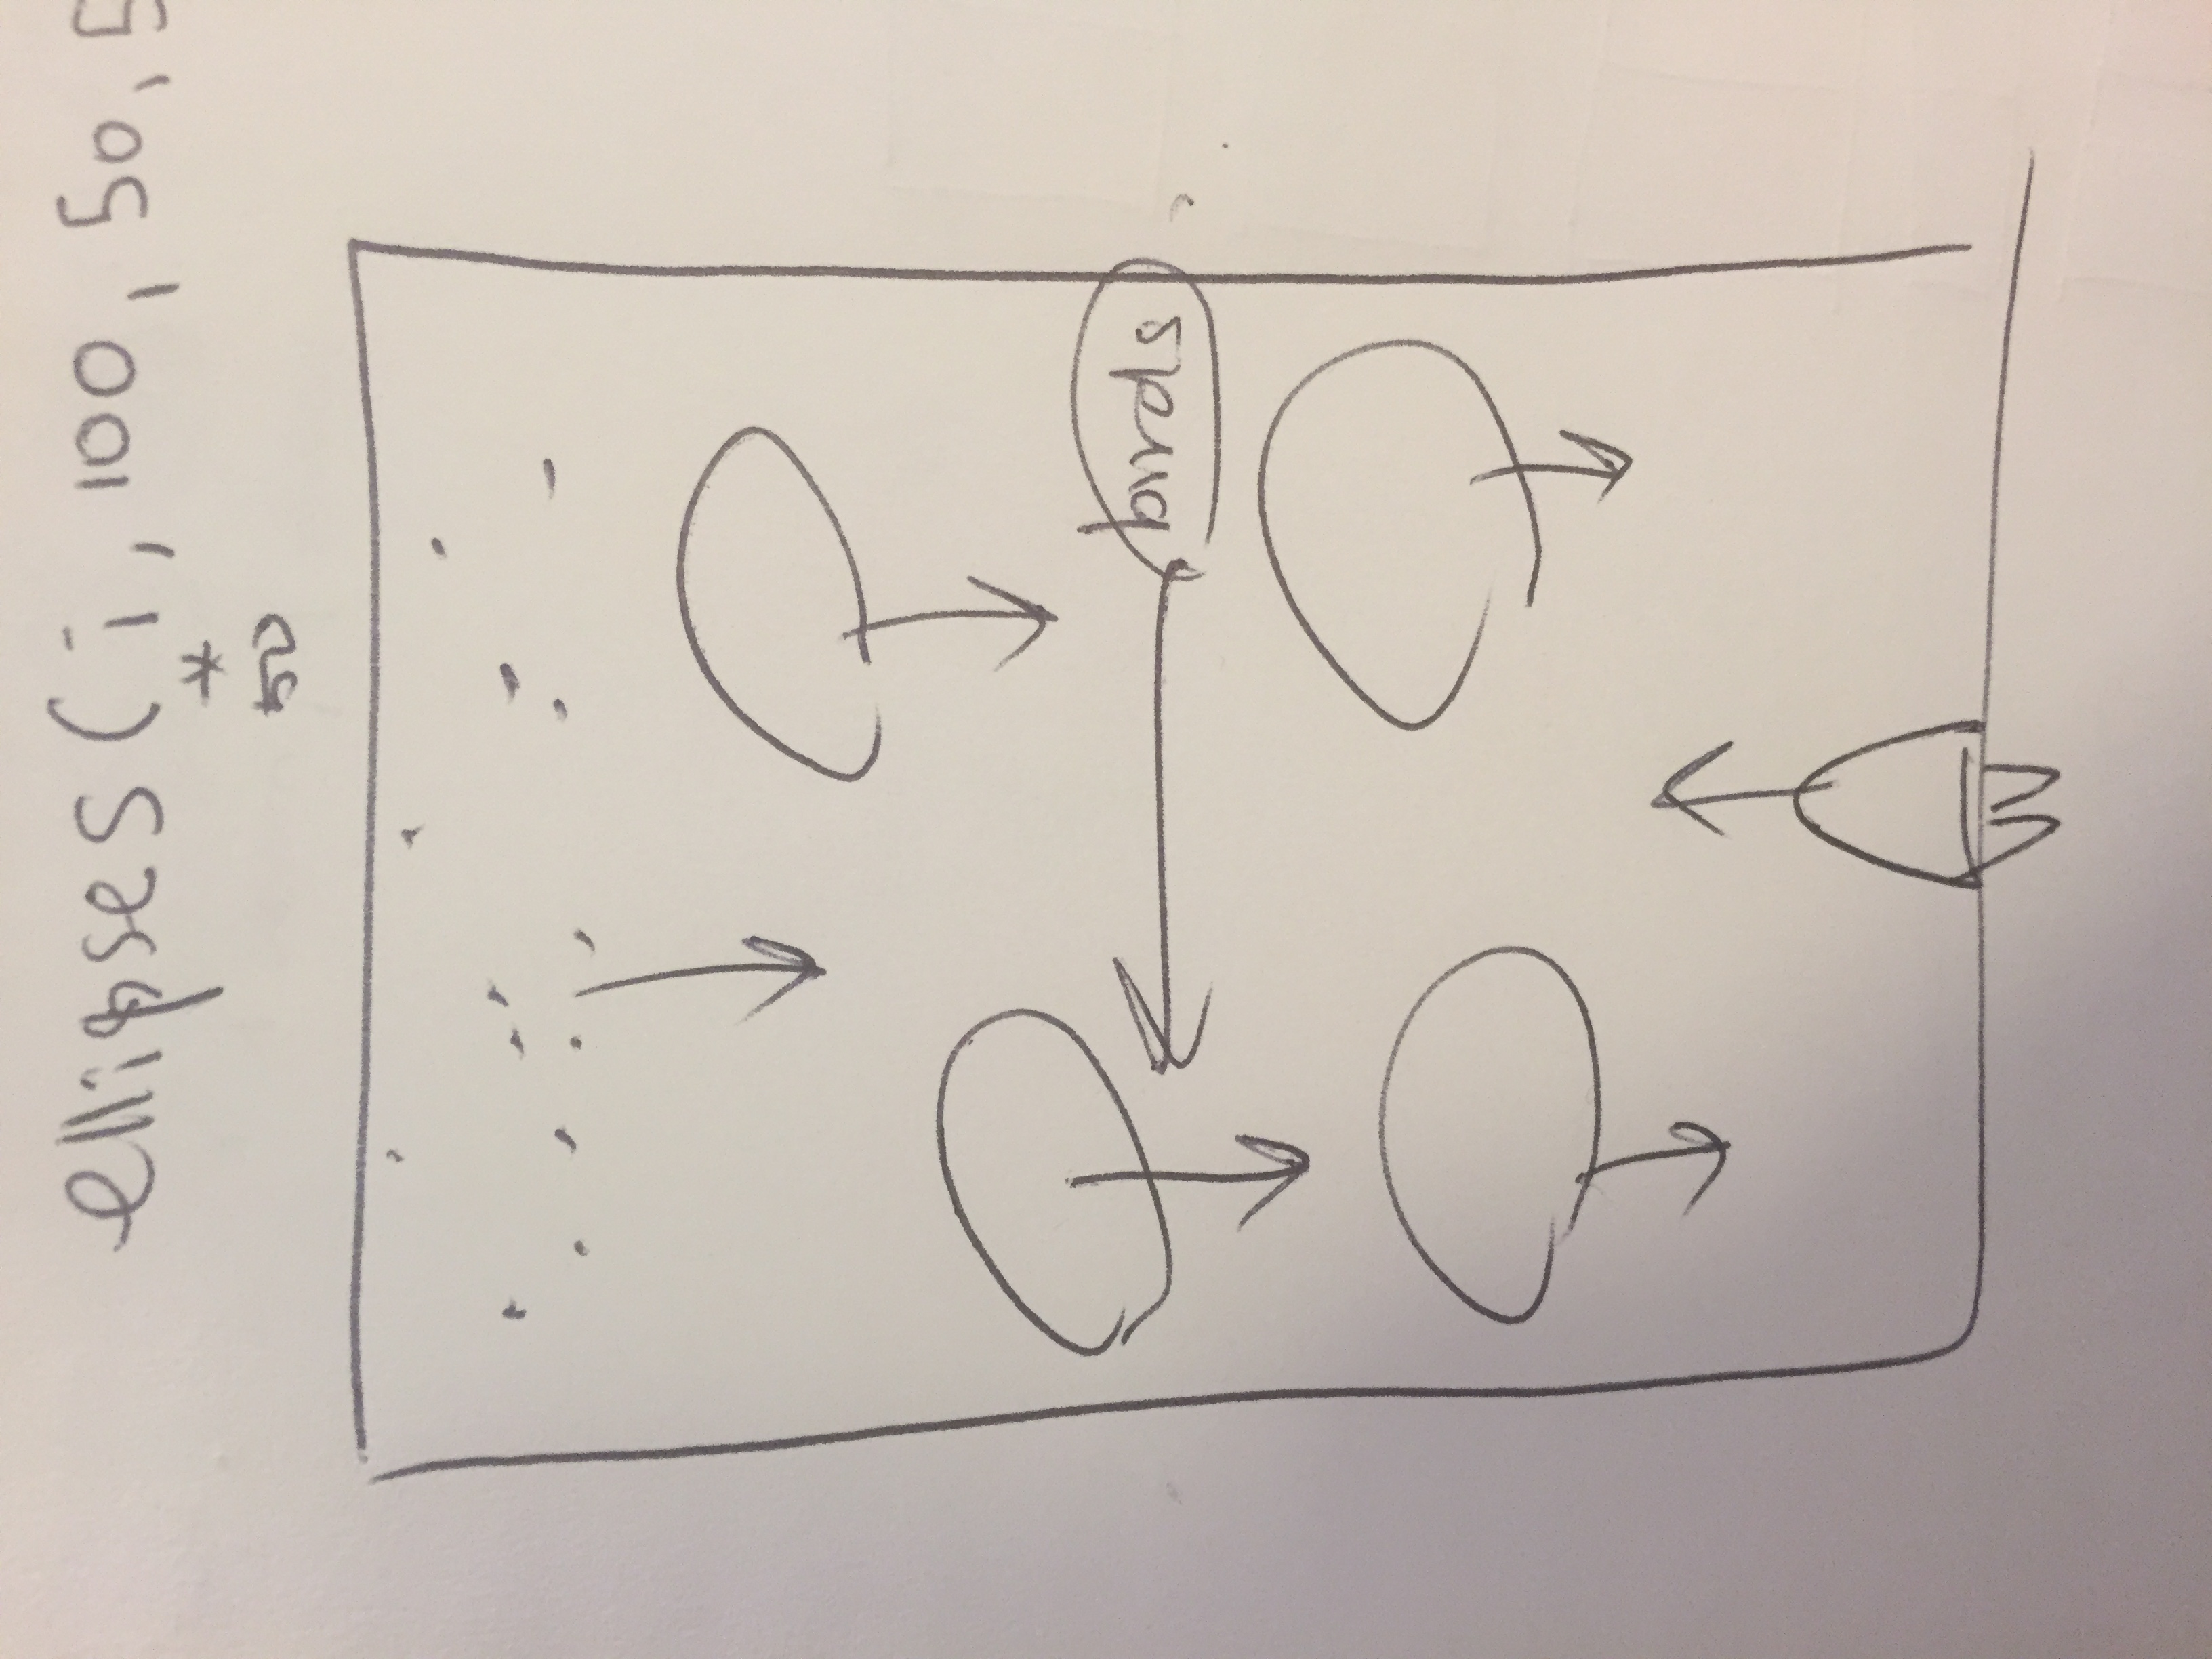 ellipses ( i , 100 , 50 , 5
*
50
birds